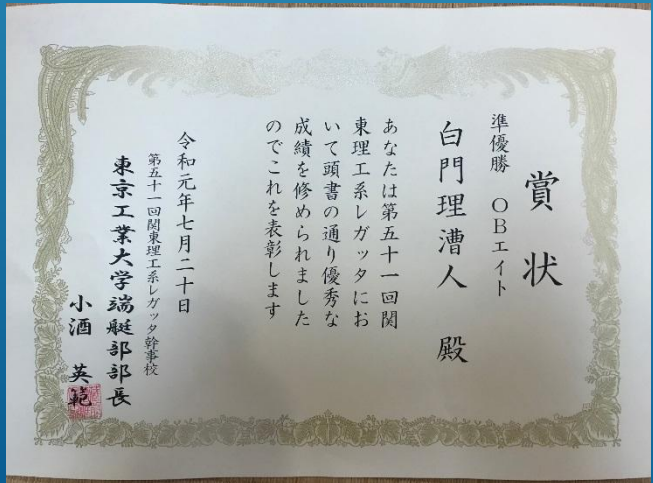 賞状
準優勝 OBエイト
白門理漕人 殿
あなたは第五十一回関
東理工系レガッタにお
いて頭書の通り優秀な
成績を修められました
のでこれを表彰します
令和元年七月二十日
第五十一回関東理工系レガッタ幹事校
東京工業大学端艇部部長
小酒 英範